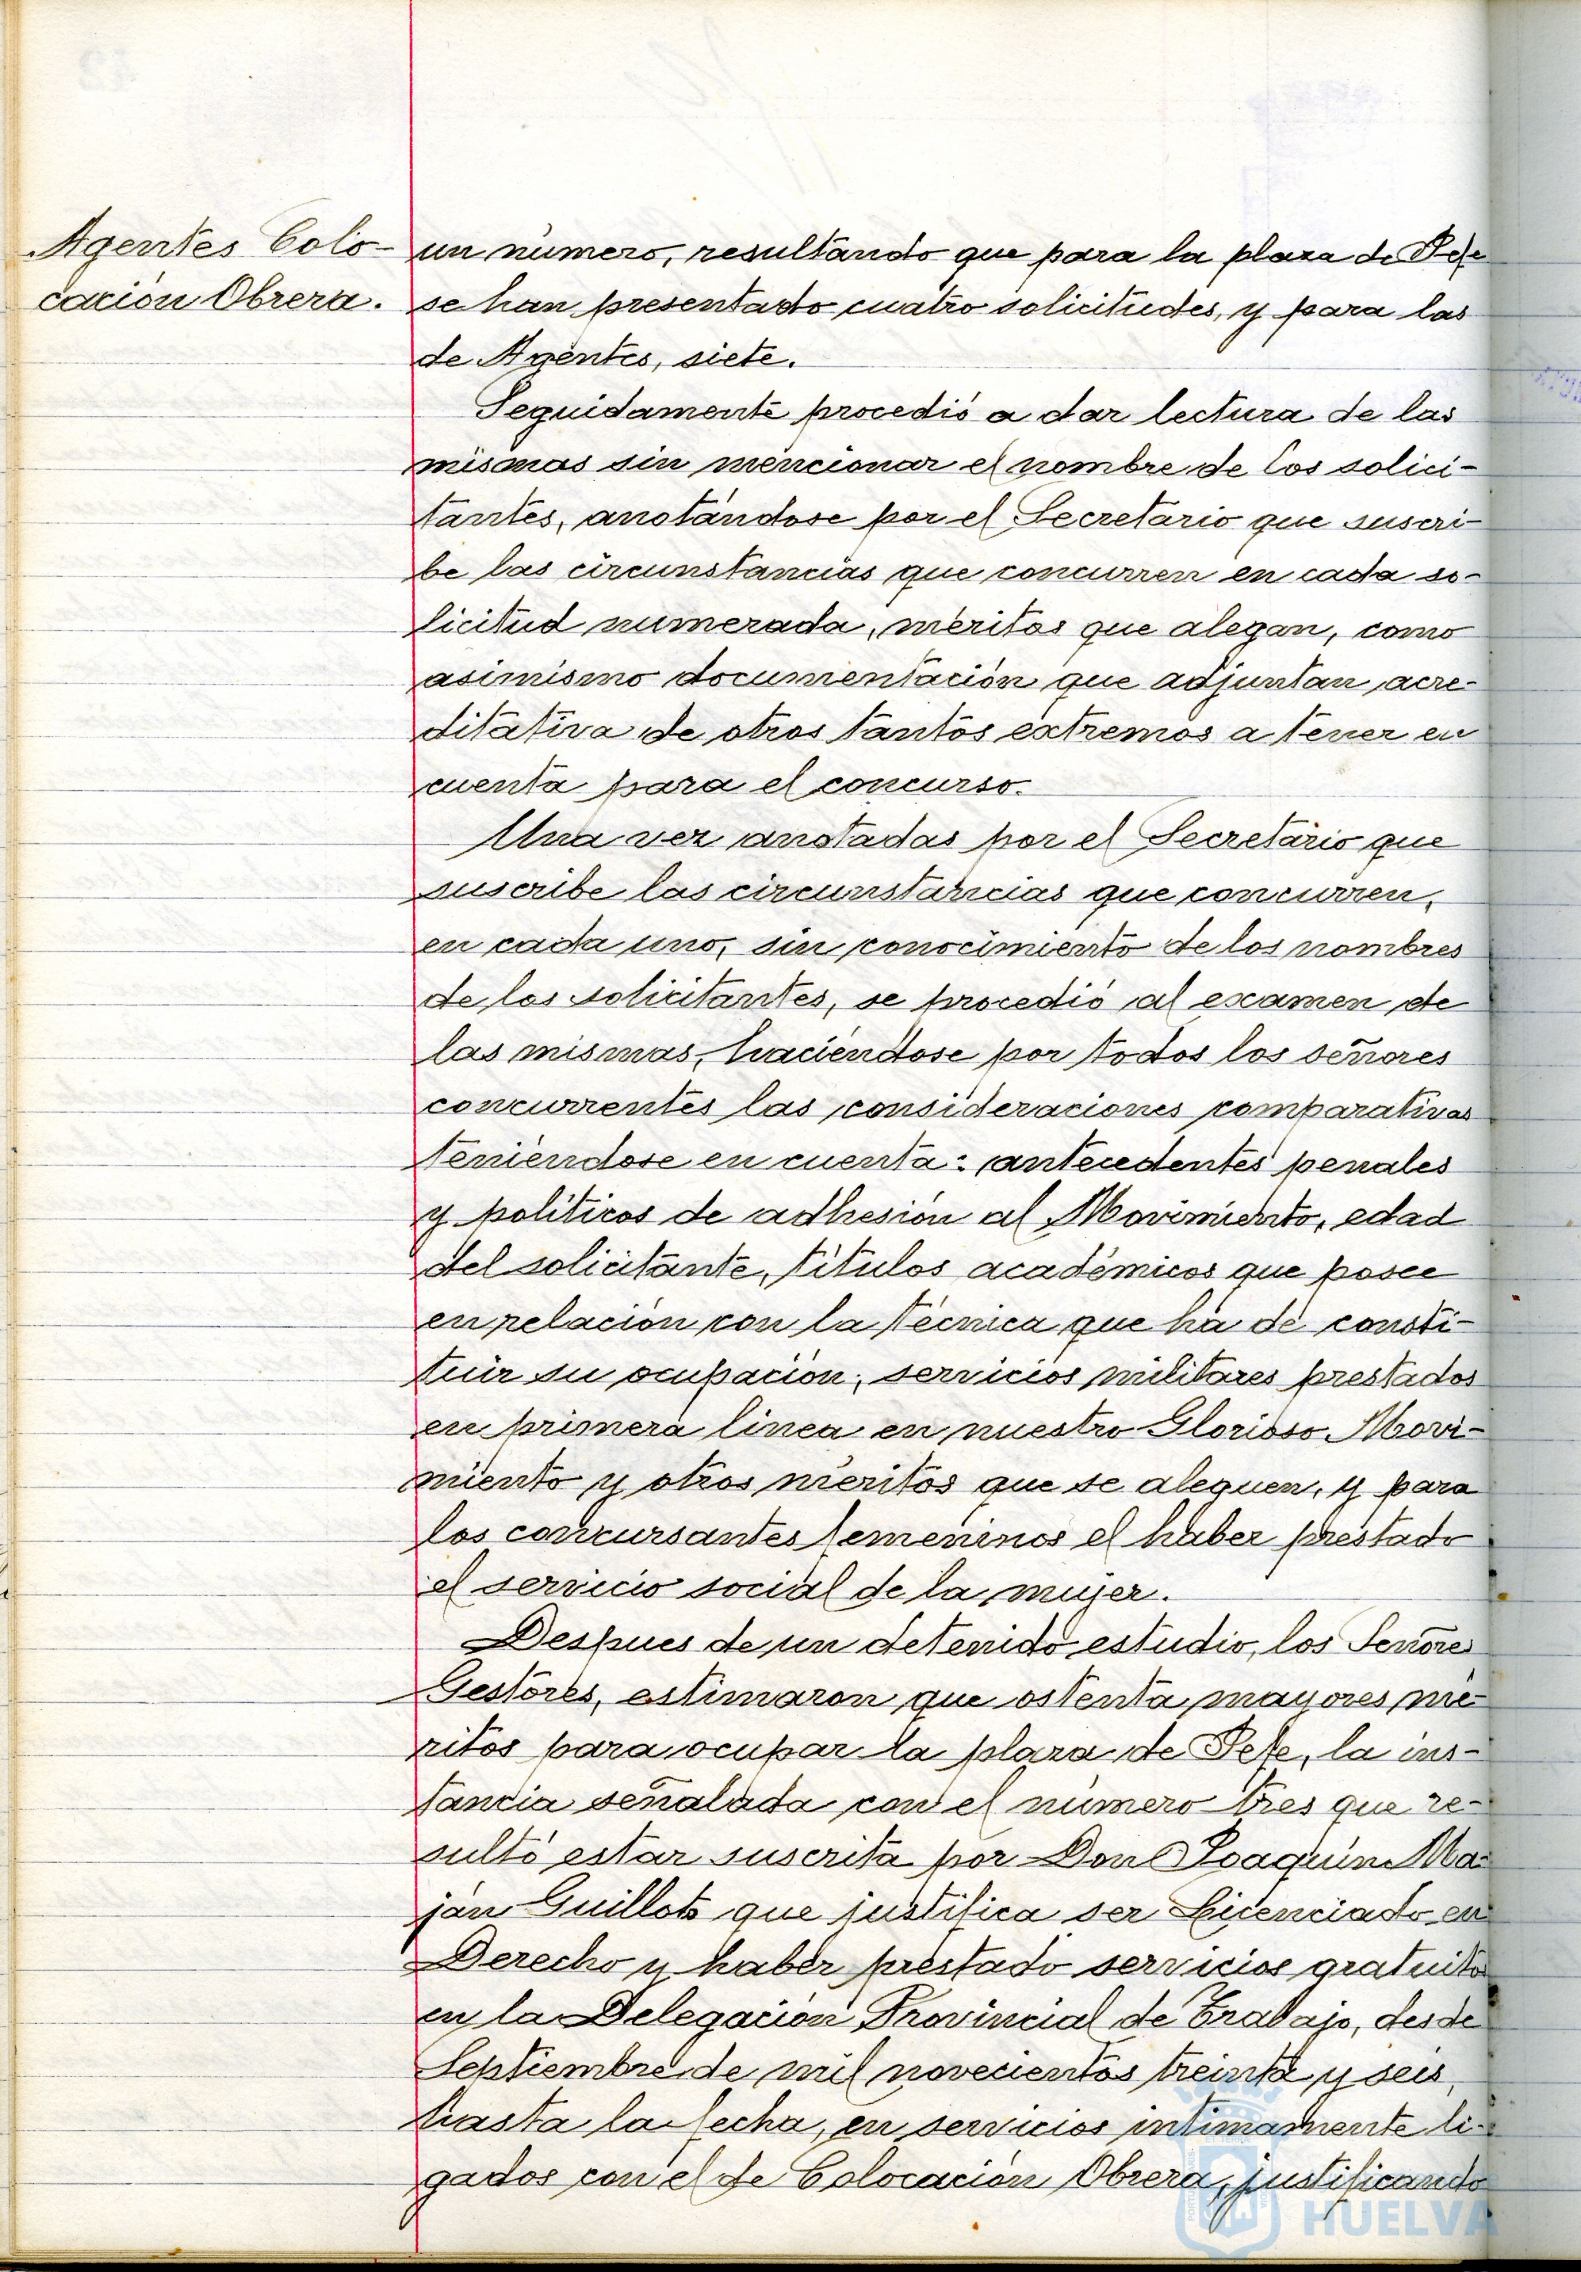 Agentes Colo-
cación Obrera.
un número, resultando que para la plaza de Jefe
se han presentado cuatro solicitudes, y para las
de Agentes, siete.
Seguidamente procedió a dar lectura de las
mismas sin mencionar el nombre de los solici-
tantes, anotándose por el Secretario que suscri-
be las circunstancias que concurren en cada so-
licitud numerada, méritos que alegan, como
asimismo documentación que adjuntan acre-
ditativa de otros tantos extremos a tener en
cuenta para el concurso.
Una vez anotadas por el Secretario que
suscribe las circunstancias que concurren,
en cada uno, sin conocimiento de los nombres
de los solicitantes, se procedió al examen de
las mismas, haciéndose por todos los señores
concurrentes las consideraciones comparativas
teniéndose en cuenta: antecedentes penales
y políticos de adhesión al Movimiento, edad
del solicitante, títulos académicos que posee
en relación con la técnica que ha de consti-
tuir su ocupación, servicios militares prestados
en primera linea en nuestro Glorioso Movi-
miento y otros méritos que se aleguen, y para
los concursantes femeninos el haber prestado
el servicio social de la mujer.
Despues de un detenido estudio, los Señores
Gestores, estimaron que ostenta mayores mé-
ritos para ocupar la plaza de Jefe, la ins-
tancia señalada con el número tres que re-
sultó estar suscrita por Don Joaquín Ma-
ján Guillot que justifica ser Licenciado en
Derecho y haber prestado servicios gratuitos
en la Delegación Provincial de Trabajo, desde
Septiembre de mil novecientos treinta y seis,
hasta la fecha, en servicios intimamente li-
gados con el de Colocación Obrera, justificando
HUELVA